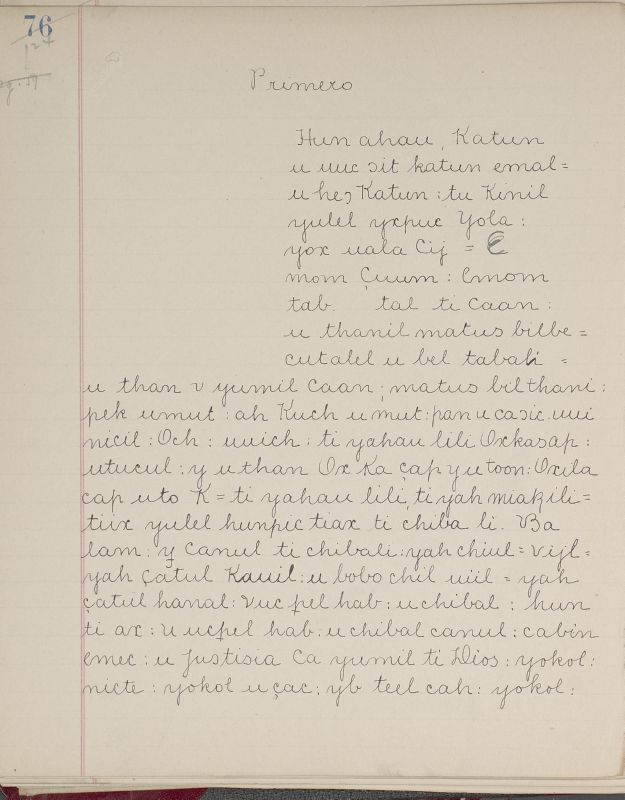 76
127
Primero
Hun ahau, Katun
u uuc ɔit katun emal=
u heɔ Katun : tu Kinil
yulel yxpuc Yola :
yox uala Cij = C
mom Çuum : Emom
tab. tal ti Caan :
u thanil matus bilbe =
cutalel u bel tabali =
u than v yumil Caan ; matus bilthani :
pek umut : ah Kuch u mut : pan u caɔic. uui
nicil : Och : uuich : ti yahau lili Oxkasap :
utucul : y u than Ox Ka çap y u toon : Oxila
çap uto K = ti yahau lili, ti yah miakili =
tiix yulel hunpic tiax ti chiba li. Ba
lam : y Canul ti chibali : yah chiul = vijl =
yah çatul Kauil : u bobo chil uiil = yah
çatul hanal : Vuc pel hab : uchibal : hun
ti ax : U ucpel hab : uchibal canul : cabin
emec : u Justisia Ca yumil ti Dios : yokol :
nicte : yokol uçac ; yb teel cah : yokol :